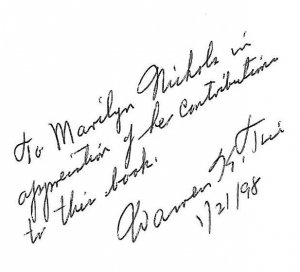 To Marilyn Nichols in
appreciation of her contributions
to this book.
Warren K.
1/21/98